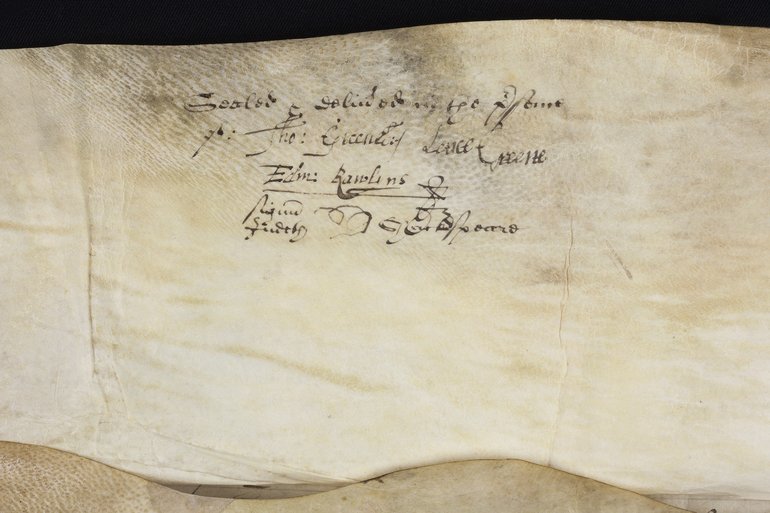 Sealed & deliu'ed in the p'sence
Tho: Lettice Greene
Edm: Rawlins
signū
Judeth Shackspeare